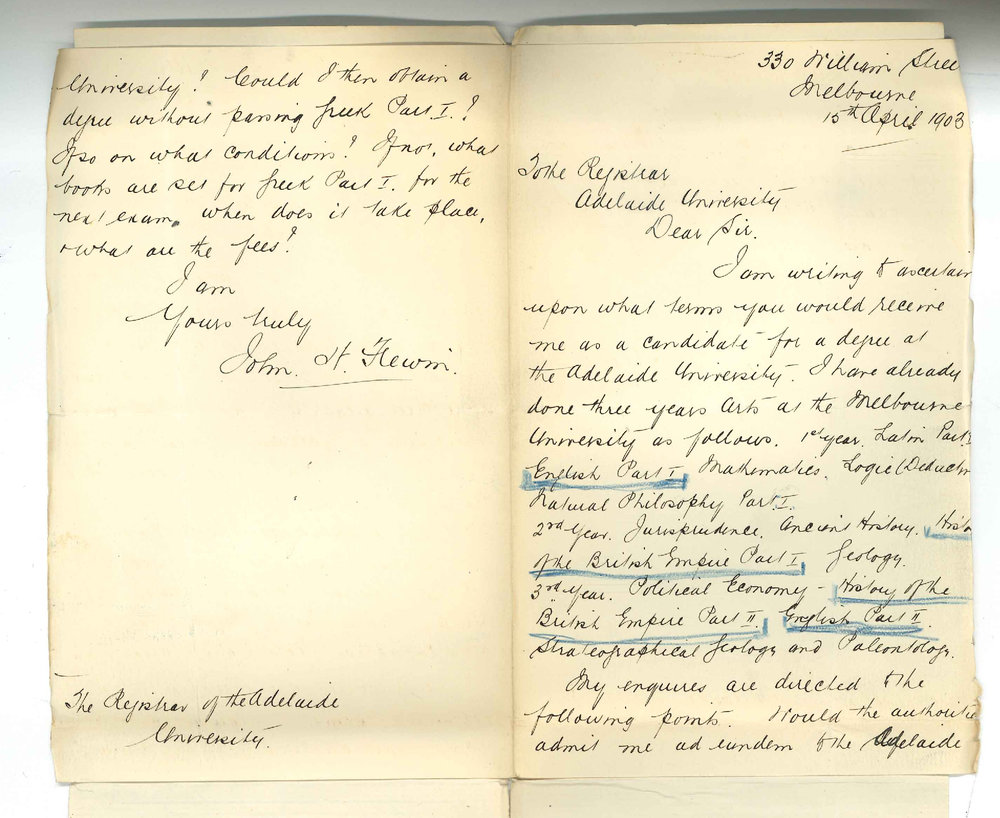 330 William Stree
Melbourne
15th April 1903
To the Registrar
Adelaide University
Dear Sir.
I am writing to ascertain
upon what terms you would receive
me as a candidate for a degree at
the Adelaide University. I have already
done three years Arts at the Melbourne
University as follows. 1st year. Latin Part I
English Part I Mathematics. Logic (Deductive
Natural Philosophy Part I.
2nd Year. Jurisprudence. Ancient History. Histor
of the British Empire Part I Geology.
3rd Year. Political Economy - History of the
British Empire Part II. English Part II.
Strateographical Geology and Paleontology.
My enquires are directed to the
following points. Would the authoritie
admit me ad eundem to the Adelaide
University? Could I then obtain a
degree without passing Greek Part I.?
If so on what conditions? If not, what
books are set for Greek Part I. for the
next exam, when does it take place,
+ what are the fees?
I am
Yours truly
John. H.
The Registrar of the Adelaide
University.